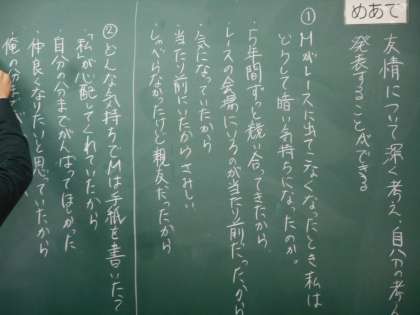 めあて
友情について深く考え、自分の考え
発表することができる
① Mがレースに出てこなくなったとき私は
どうして暗い気持ちになったのか。
・5年間ずっと競い合ってきたから
・レースの会場にいるのが当たり前だったから
・気になっていたから
・当たり前にいたからさみしい
・しゃべらなかったけど親友だったから
② どんな気持ちでMは手紙を書いたか?
・「私が心配してくれていたから
・自分の分までがんばってほしかった
・仲良くなりたいと思っていたから
俺の分まで